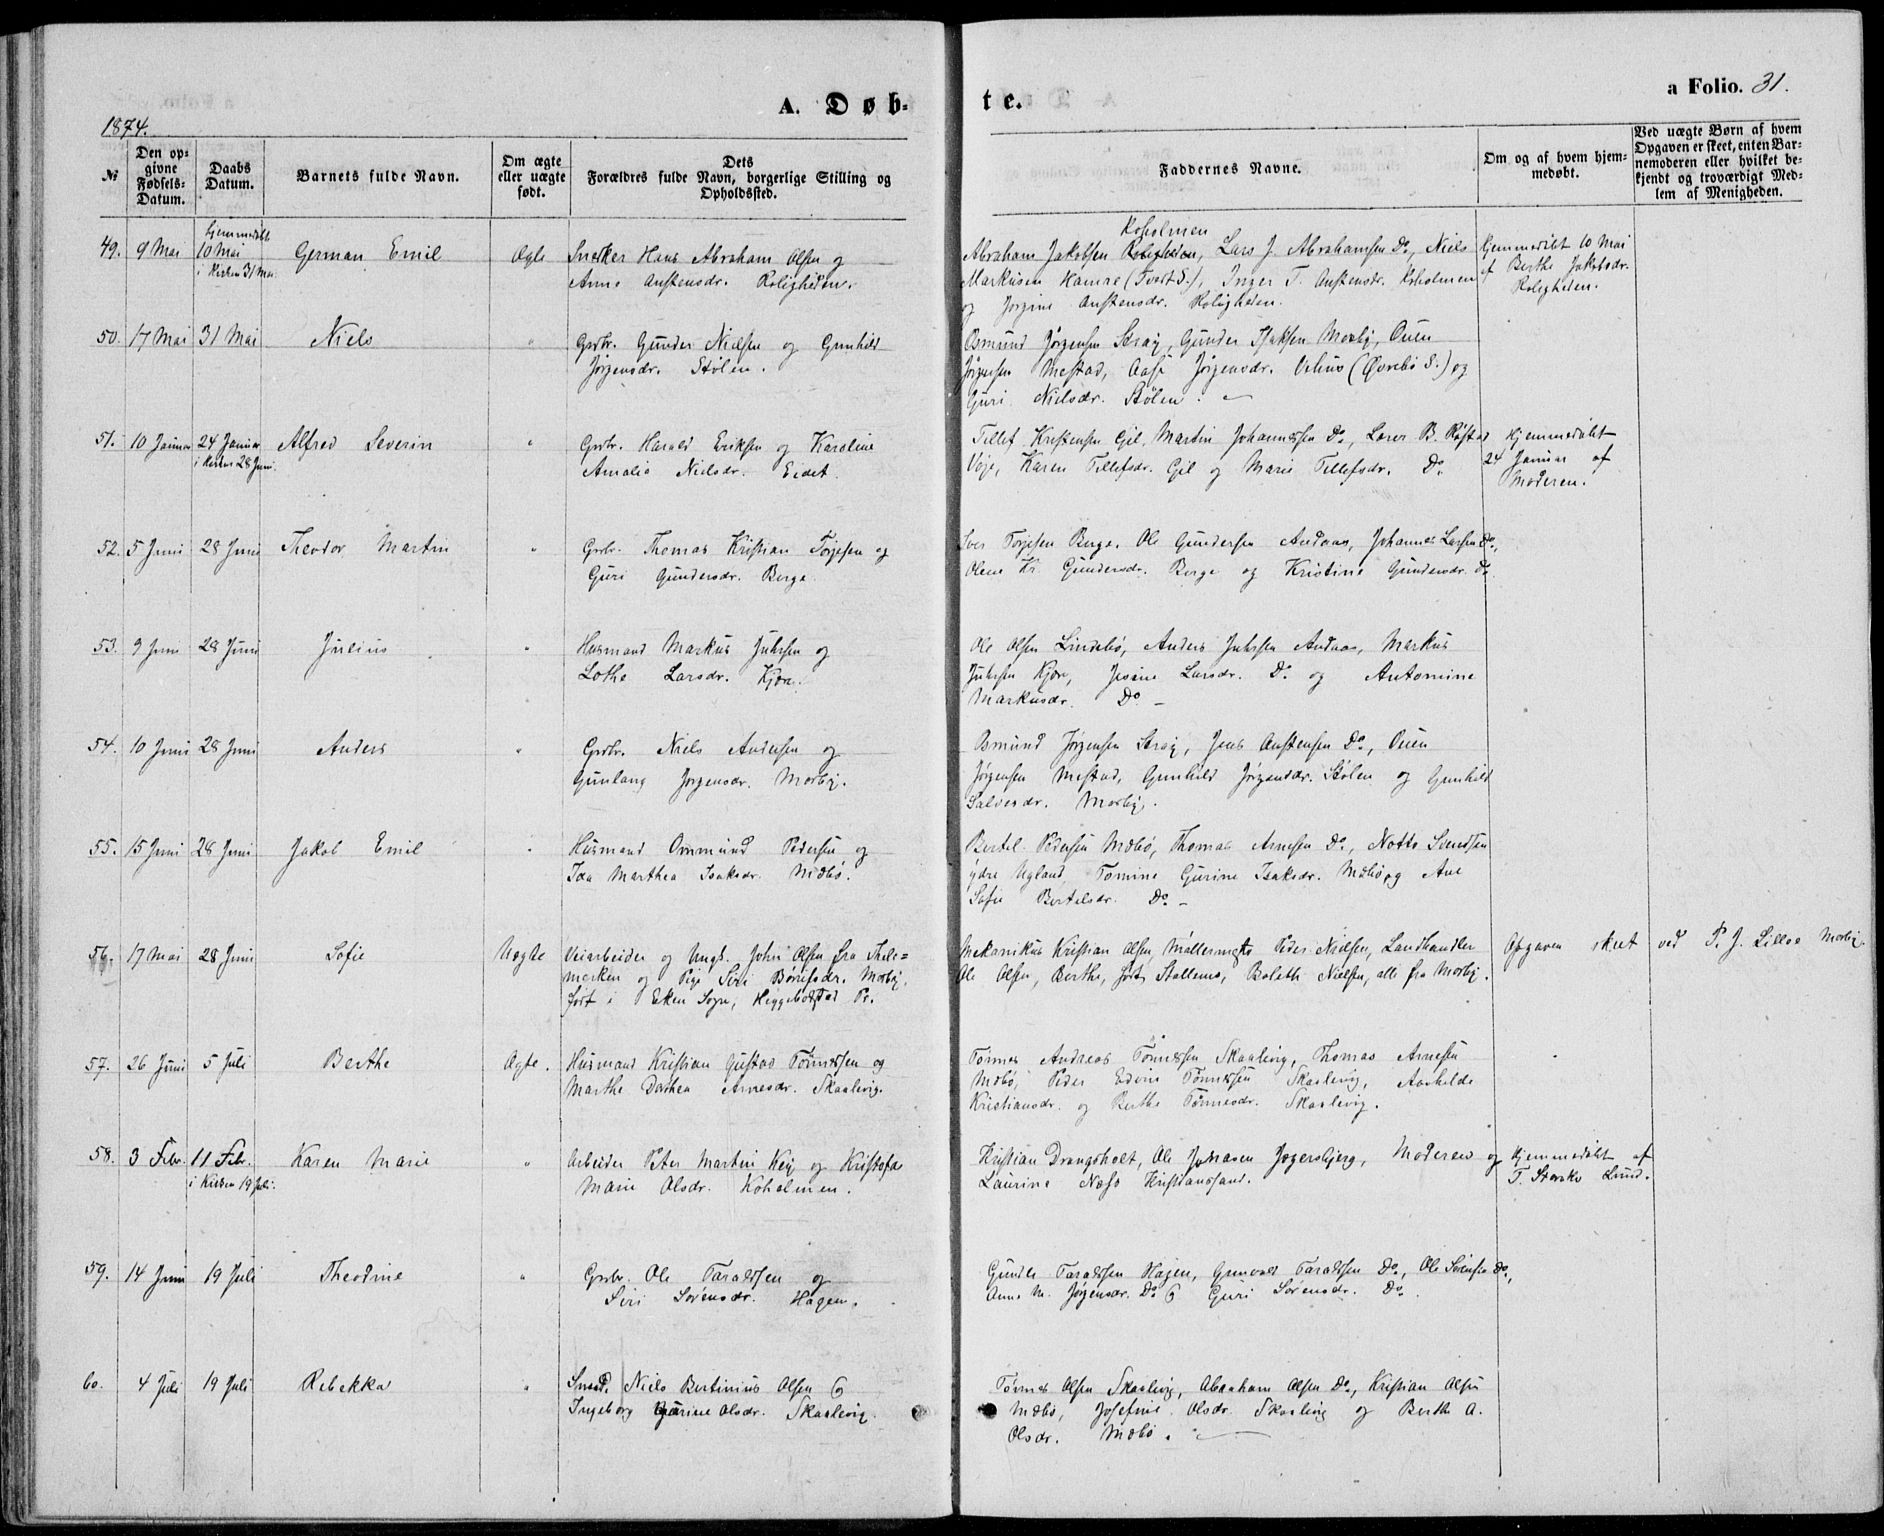 A. Døb-
te.
a Folio. 31.
1874.
No
Den op-
givne
Fødsels-
Datum.
Daabs
Datum.
Barnets fulde Navn.
Om ægte
eller uægte
født.
Dets
Forældres fulde Navn, borgerlige Stilling og
Opholdssted.
Faddernes Navne.
Om og af hvem hjem-
medøbt.
Ved uægte Børn af hvem
Opgaven er skeet, enten Bar-
nemoderen eller hvilket be-
kjendt og troværdigt Med-
lem af Menigheden.
49. 9 Mai
Hjemmedøbt
10 Mai
i Kirken 31 Mai
German Emil
Ægte
Snedker Hans Abraham Olsen og
Anne Anstensdr. Roligheden.
Koholmen
Abraham Jakobsen Roligheden, Lars J. Abrahamsen Do, Niels
Markusen Hamre (Tveit S.), Inger T. Anstensdr. Koholmen
og Jørgine Anstensdr. Roligheden.
Hjemmedøbt 10 Mai
af Berthe Jakobsdr.
Roligheden.
50. 17 Mai 31 Mai Niels "
Grbr. Gunder Nielsen og Gunhild
Jørgensdr. Stølen.
Osmund Jørgensen Stray, Gunder Isaksen Mosby, Ouen
Jørgensen Mestad, Aase Jørgensdr. Vehus (Øvrebø S.) og
Guri Nielsdr. Stølen.
51. 10 Januar 24 Januar
i Kirken 28 Juni
Alfred Severin "
Grbr. Harald Eriksen og Karoline
Amalia Nielsdr. Eidet.
Tellef Kristensen Gil, Martin Johannesen Do, Lærer B. Røstad
Voie, Karen Tellefsdr. Gil og Marie Tellefsdr. Do.
Hjemmedøbt
24 Januar af
Moderen.
52. 5 Juni 28 Juni Theodor Martin "
Grbr. Thomas Kristian Torjesen og
Guri Gundersdr. Berge
Torjesen Berge, Ole Gundersen Andaas, Johannes Larsen Do,
Olene Kr. Gundersdr. Berge og Kristine Gundersdr. Do
53. 9 Juni 28 Juni Julius "
Husmand Markus Juhlsen og
Lothe Larsdr. Kjær.
Ole Olsen Lindebø, Anders Juhlsen Andaas, Markus
Juhlsen Kjær, Jesine Larsdr. Do og Antomine
Markusdr. Do -
54. 10 Juni 28 Juni Anders "
Grbr. Niels Andersen og
Gunlaug Jørgensdr. Mosby.
Osmund Jørgensen Stray, Jens Anstensen Do, Ouen
Jørgensen Mestad, Gunhild Jørgensdr. Stølen og Gunhild
Salvesdr. Mosby.
55. 15 Juni 28 Juni Jakob Emil "
Husmand Ommund Pedersen og
Ida Marthea Isaksdr. Mæbø.
Bertel Pedersen Mæbø, Thomas Arnesen Do, Notto Svendsen
ydre Ugland, Tomine Gurine Isaksdr. Mæbø og Ane
Sofie Bertelsdr. Do -
56. 17 Mai 28 Juni Sofie Uægte
Veiarbeider og Ungk. John Olsen fra Thele=
marken og Pige Siri Børufsdr. Mosby,
født i Eken Sogn, Heggebostad Pr.
Mekanikus Kristian Olsen, Møllermester Peder Nielsen, Landhandler
Ole Olsen, Berthe, født Stallemo, Boleth Nielsen, alle fra Mosby.
Opgaven skeet ved P. J. Lilloe Mosby.
57. 26 Juni 5 Juli Berthe Ægte.
Husmand Kristian Gustad Tønnessen og
Marthe Dorthea Arnesdr. Skaalevig.
Tønnes Andreas Tønnessen Skaalevig, Thomas Arnesen
Mæbø, Peder Edvin Tønnessen Skaalevig, Aashilde
Kristiansdr. og Berthe Tønnesdr. Skaalevig.
58. 3 Febr. 11 Febr.
i Kirken 19 Juli.
Karen Marie "
Arbeider Peter Martin Keij og Kristofa
Marie Olsdr. Koholmen.
Kristian Drangsholt, Ole Johnasen Jægersbjerg, Moderen og
Laurine Næss Kristianssand.
Hjemmedøbt af
T. Stensko Lund.
59. 14 Juni 19 Juli Theodine "
Grbr. Ole Taraldsen og
Siri Sørensdr. Hagen.
Gunder Taraldsen Hagen, Grunvald Taraldsen Do, Ole Sørensen Do,
Anne M. Jørgensdr. Do & Guri Sørensdr. Do.
60. 4 Juli 19 Juli Rebekka "
Smed. Niels Bertinius Olsen &
Ingeborg Gurine Olsdr. Skaalevig.
Tønnes Olsen Skaalevig, Abraham Olsen Do, Kristian Olsen
Mæbø, Josefine Olsdr. Skaalevig og Berthe A.
Olsdr. Mæbø.